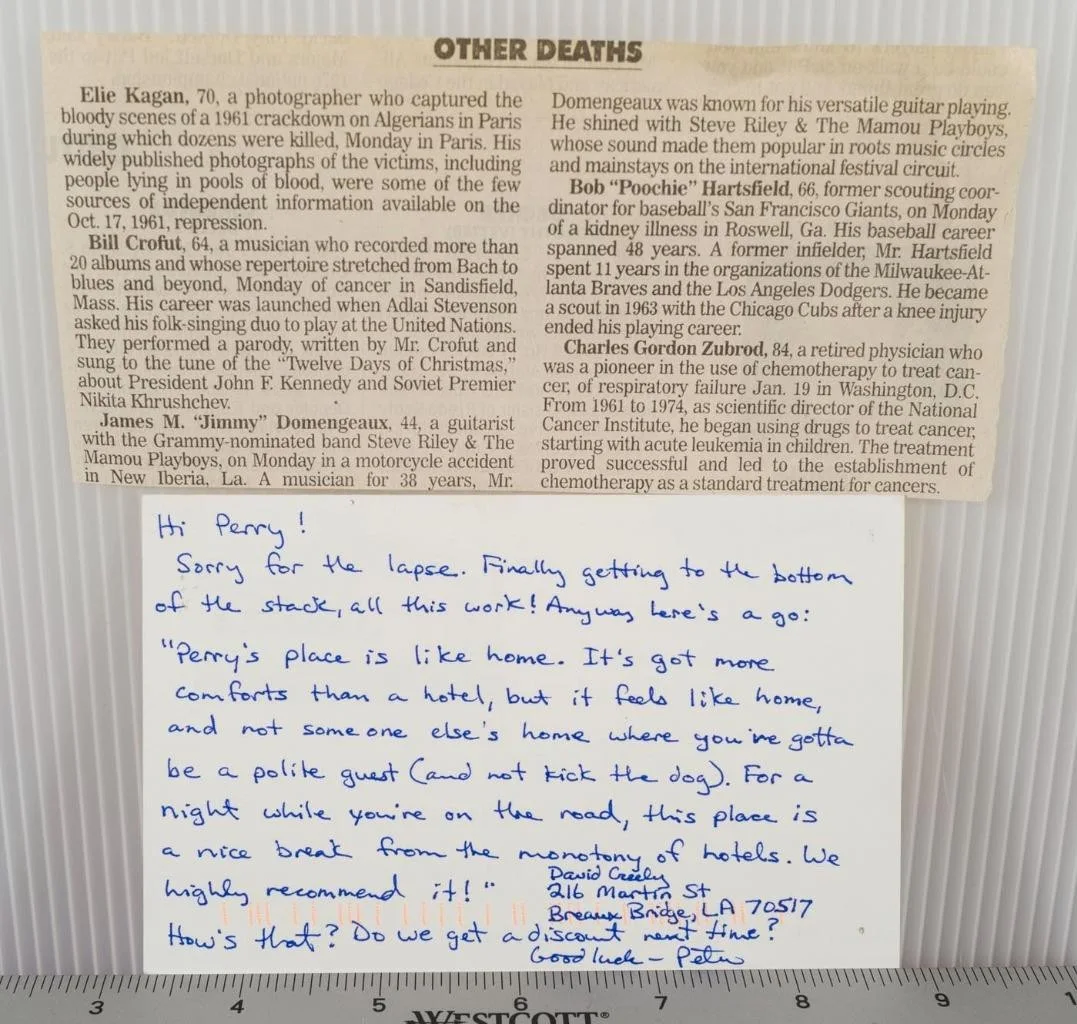 OTHER DEATHS
Elie Kagan, 70, a photographer who captured the
bloody scenes of a 1961 crackdown on Algerians in Paris
during which dozens were killed, Monday in Paris. His
widely published photographs of the victims, including
people lying in pools of blood, were some of the few
sources of independent information available on the
Oct. 17, 1961, repression.
Bill Crofut, 64, a musician who recorded more than
20 albums and whose repertoire stretched from Bach to
blues and beyond, Monday of cancer in Sandisfield,
Mass. His career was launched when Adlai Stevenson
asked his folk-singing duo to play at the United Nations.
They performed a parody, written by Mr. Crofut and
sung to the tune of the "Twelve Days of Christmas,"
about President John F. Kennedy and Soviet Premier
Nikita Khrushchev.
James M. "Jimmy" Domengeaux, 44, a guitarist
with the Grammy-nominated band Steve Riley & The
Mamou Playboys, on Monday in a motorcycle accident
in New Iberia, La. A musician for 38 years, Mr.
Domengeaux was known for his versatile guitar playing.
He shined with Steve Riley & The Mamou Playboys,
whose sound made them popular in roots music circles
and mainstays on the international festival circuit.
Bob "Poochie" Hartsfield, 66, former scouting coor-
dinator for baseball's San Francisco Giants, on Monday
of a kidney illness in Roswell, Ga. His baseball career
spanned 48 years. A former infielder, Mr. Hartsfield
spent 11 years in the organizations of the Milwaukee-At-
lanta Braves and the Los Angeles Dodgers. He became
a scout in 1963 with the Chicago Cubs after a knee injury
ended his playing career.
Charles Gordon Zubrod, 84, a retired physician who
was a pioneer in the use of chemotherapy to treat can-
cer, of respiratory failure Jan. 19 in Washington, D.C.
From 1961 to 1974, as scientific director of the National
Cancer Institute, he began using drugs to treat cancer,
starting with acute leukemia in children. The treatment
proved successful and led to the establishment of
chemotherapy as a standard treatment for cancers.
Hi Perry!
Sorry for the lapse. Finally getting to the bottom
of the stack, all this work! Anyway here's a go:
"Perry's place is like home. It's got more
comforts than a hotel, but it feels like home,
and not someone else's home where you're gotta
be a polite guest (and not kick the dog). For a
night while you're on the road, this place is
a nice break from the monotony of hotels. We
highly recommend it!"
David Greely
216 Martin St
Breaux Bridge, LA 70517
How's that? Do we get a discount next time?
Good luck – Peter
3 4 5 6 7 8 9
WESTCOTT®